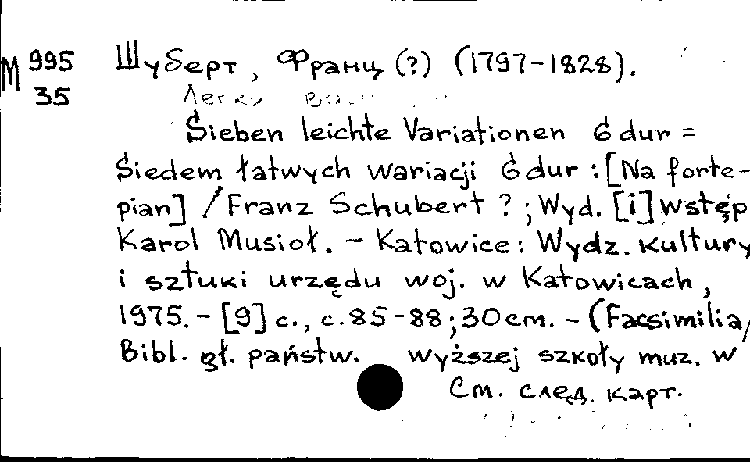 М 995
35
Шуберт, Франц (?) (1797-1828).
Sieben leichte Variationen G dur =
Siedem łatwych wariacji G dur : [Na forte-
pian] / Franz Schubert ? ; Wyd. [i] wstęp
Karol Musioł. - Katowice : Wydz. kultury
i sztuki urzędu woj. w Katowicach,
1975. - [9] с., с. 85-88 ; 30 cm. - (Facsimilia/
Bibl. gł. państw. wyższej szkoły muz. w
См. след. карт.